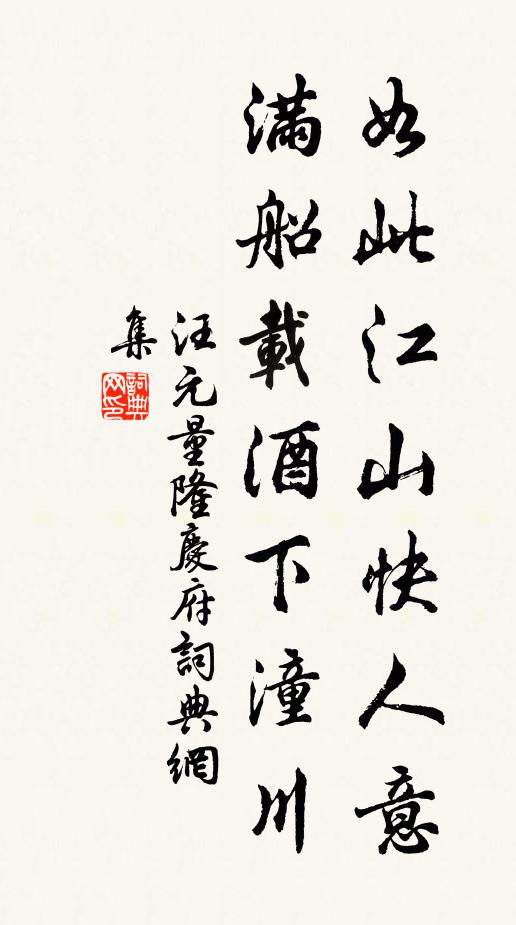 如此江山快人意
滿船載酒下潼川
汪元量隆慶府詞典網
集
詞典
网印